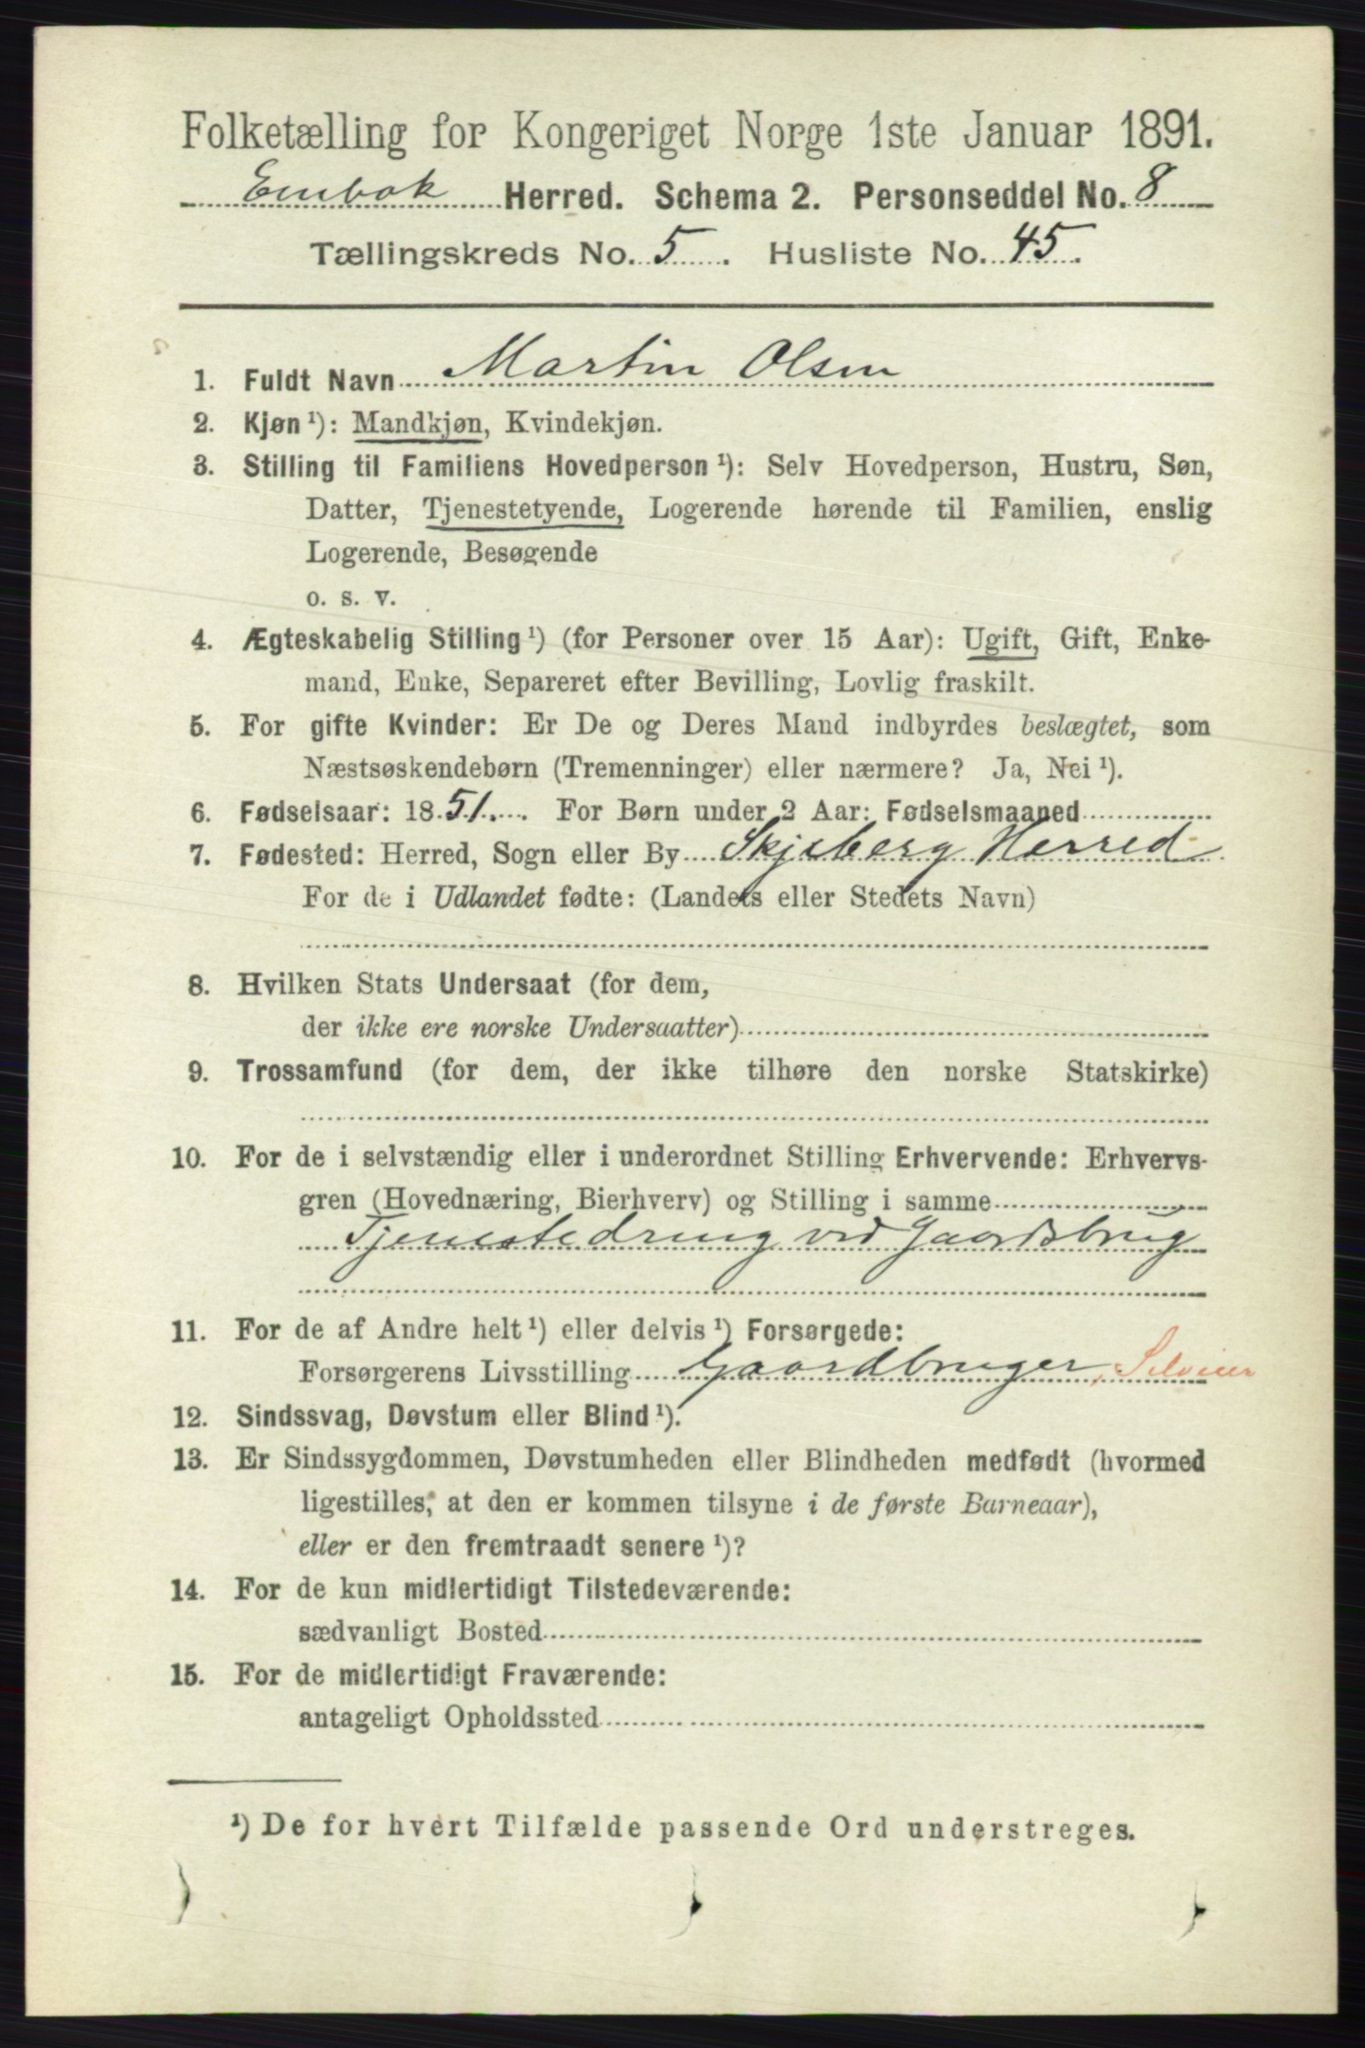 Folketælling for Kongeriget Norge 1ste Januar 1891.
Herred. Schema 2. Personseddel No. 8
Tællingskreds No. 5. Husliste No. 45.
1. Fuldt Navn Martin Olsen
2. Kjøn ¹): Mandkjøn, Kvindekjøn.
3. Stilling til Familiens Hovedperson ¹): Selv Hovedperson, Hustru, Søn,
Datter, Tjenestetyende, Logerende hørende til Familien, enslig
Logerende, Besøgende
o. s. v.
4. Ægteskabelig Stilling ¹) (for Personer over 15 Aar): Ugift, Gift, Enke-
mand, Enke, Separeret efter Bevilling, Lovlig fraskilt.
5. For gifte Kvinder: Er De og Deres Mand indbyrdes beslægtet, som
Næstsøskendebørn (Tremenninger) eller nærmere? Ja, Nei ¹).
6. Fødselsaar: 1851. For Børn under 2 Aar: Fødselsmaaned
7. Fødested: Herred, Sogn eller By Skjeberg Herred
For de i Udlandet fødte: (Landets eller Stedets Navn)
8. Hvilken Stats Undersaat (for dem,
der ikke ere norske Undersaatter)
9. Trossamfund (for dem, der ikke tilhøre den norske Statskirke)
10. For de i selvstændig eller i underordnet Stilling Erhvervende: Erhvervs-
gren (Hovednæring, Bierhverv) og Stilling i samme
Tjenestedreng ved Gaardsbrug
11. For de af Andre helt ¹) eller delvis ¹) Forsørgede:
Forsørgerens Livsstilling Gaardbruger, Selveier
12. Sindssvag, Døvstum eller Blind ¹).
13. Er Sindssygdommen, Døvstumheden eller Blindheden medfødt (hvormed
ligestilles, at den er kommen tilsyne i de første Barneaar),
eller er den fremtraadt senere ¹)?
14. For de kun midlertidigt Tilstedeværende:
sædvanligt Bosted
15. For de midlertidigt Fraværende:
antageligt Opholdssted
¹) De for hvert Tilfælde passende Ord understreges.